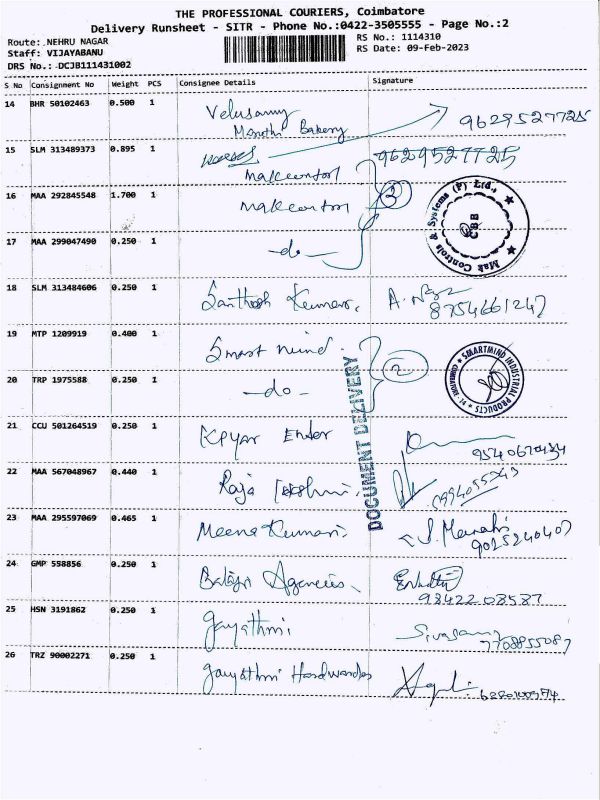 THE PROFESSIONAL COURIERS, Coimbatore
Delivery Runsheet - SITR - Phone No.:0422-3505555 - Page No.:2
Route: NEHRU NAGAR
Staff: VIJAYABANU
DRS No.: DCJB111431002
RS No.: 1114310
RS Date: 09-Feb-2023
S No Consignment No Weight PCS Consignee Details Signature
14 BHR 50102463 0.500 1 Velusamy
Bakery 9629527725
15 SLM 313489373 0.895 1 9629527725
Makcontrol
16 MAA 292845548 1.700 1 Makcontrol 3
Mak Controls & Systems (P) Ltd., CBB
17 MAA 299047490 0.250 1 -do-
18 SLM 313484606 0.250 1 Santhosh Kumar. A.
8754661247
19 MTP 1209919 0.400 1 Smart mind.
20 TRP 1975588 0.250 1 -do- 2
SMARTMIND INDUSTRIAL PRODUCTS COIMBATORE-14
DOCUMENT DELIVERY
21 CCU 501264519 0.250 1
22 MAA 567048967 0.440 1 Raja Lakshmi.
23 MAA 295597069 0.465 1 Meena Kumari.
9025240407
24 GMP 558856 0.250 1 Balaji Agencies.
9842208587
25 HSN 3191862 0.250 1 Gayathri
7708855087
26 TRZ 90002271 0.250 1 Gayathri Hardwares